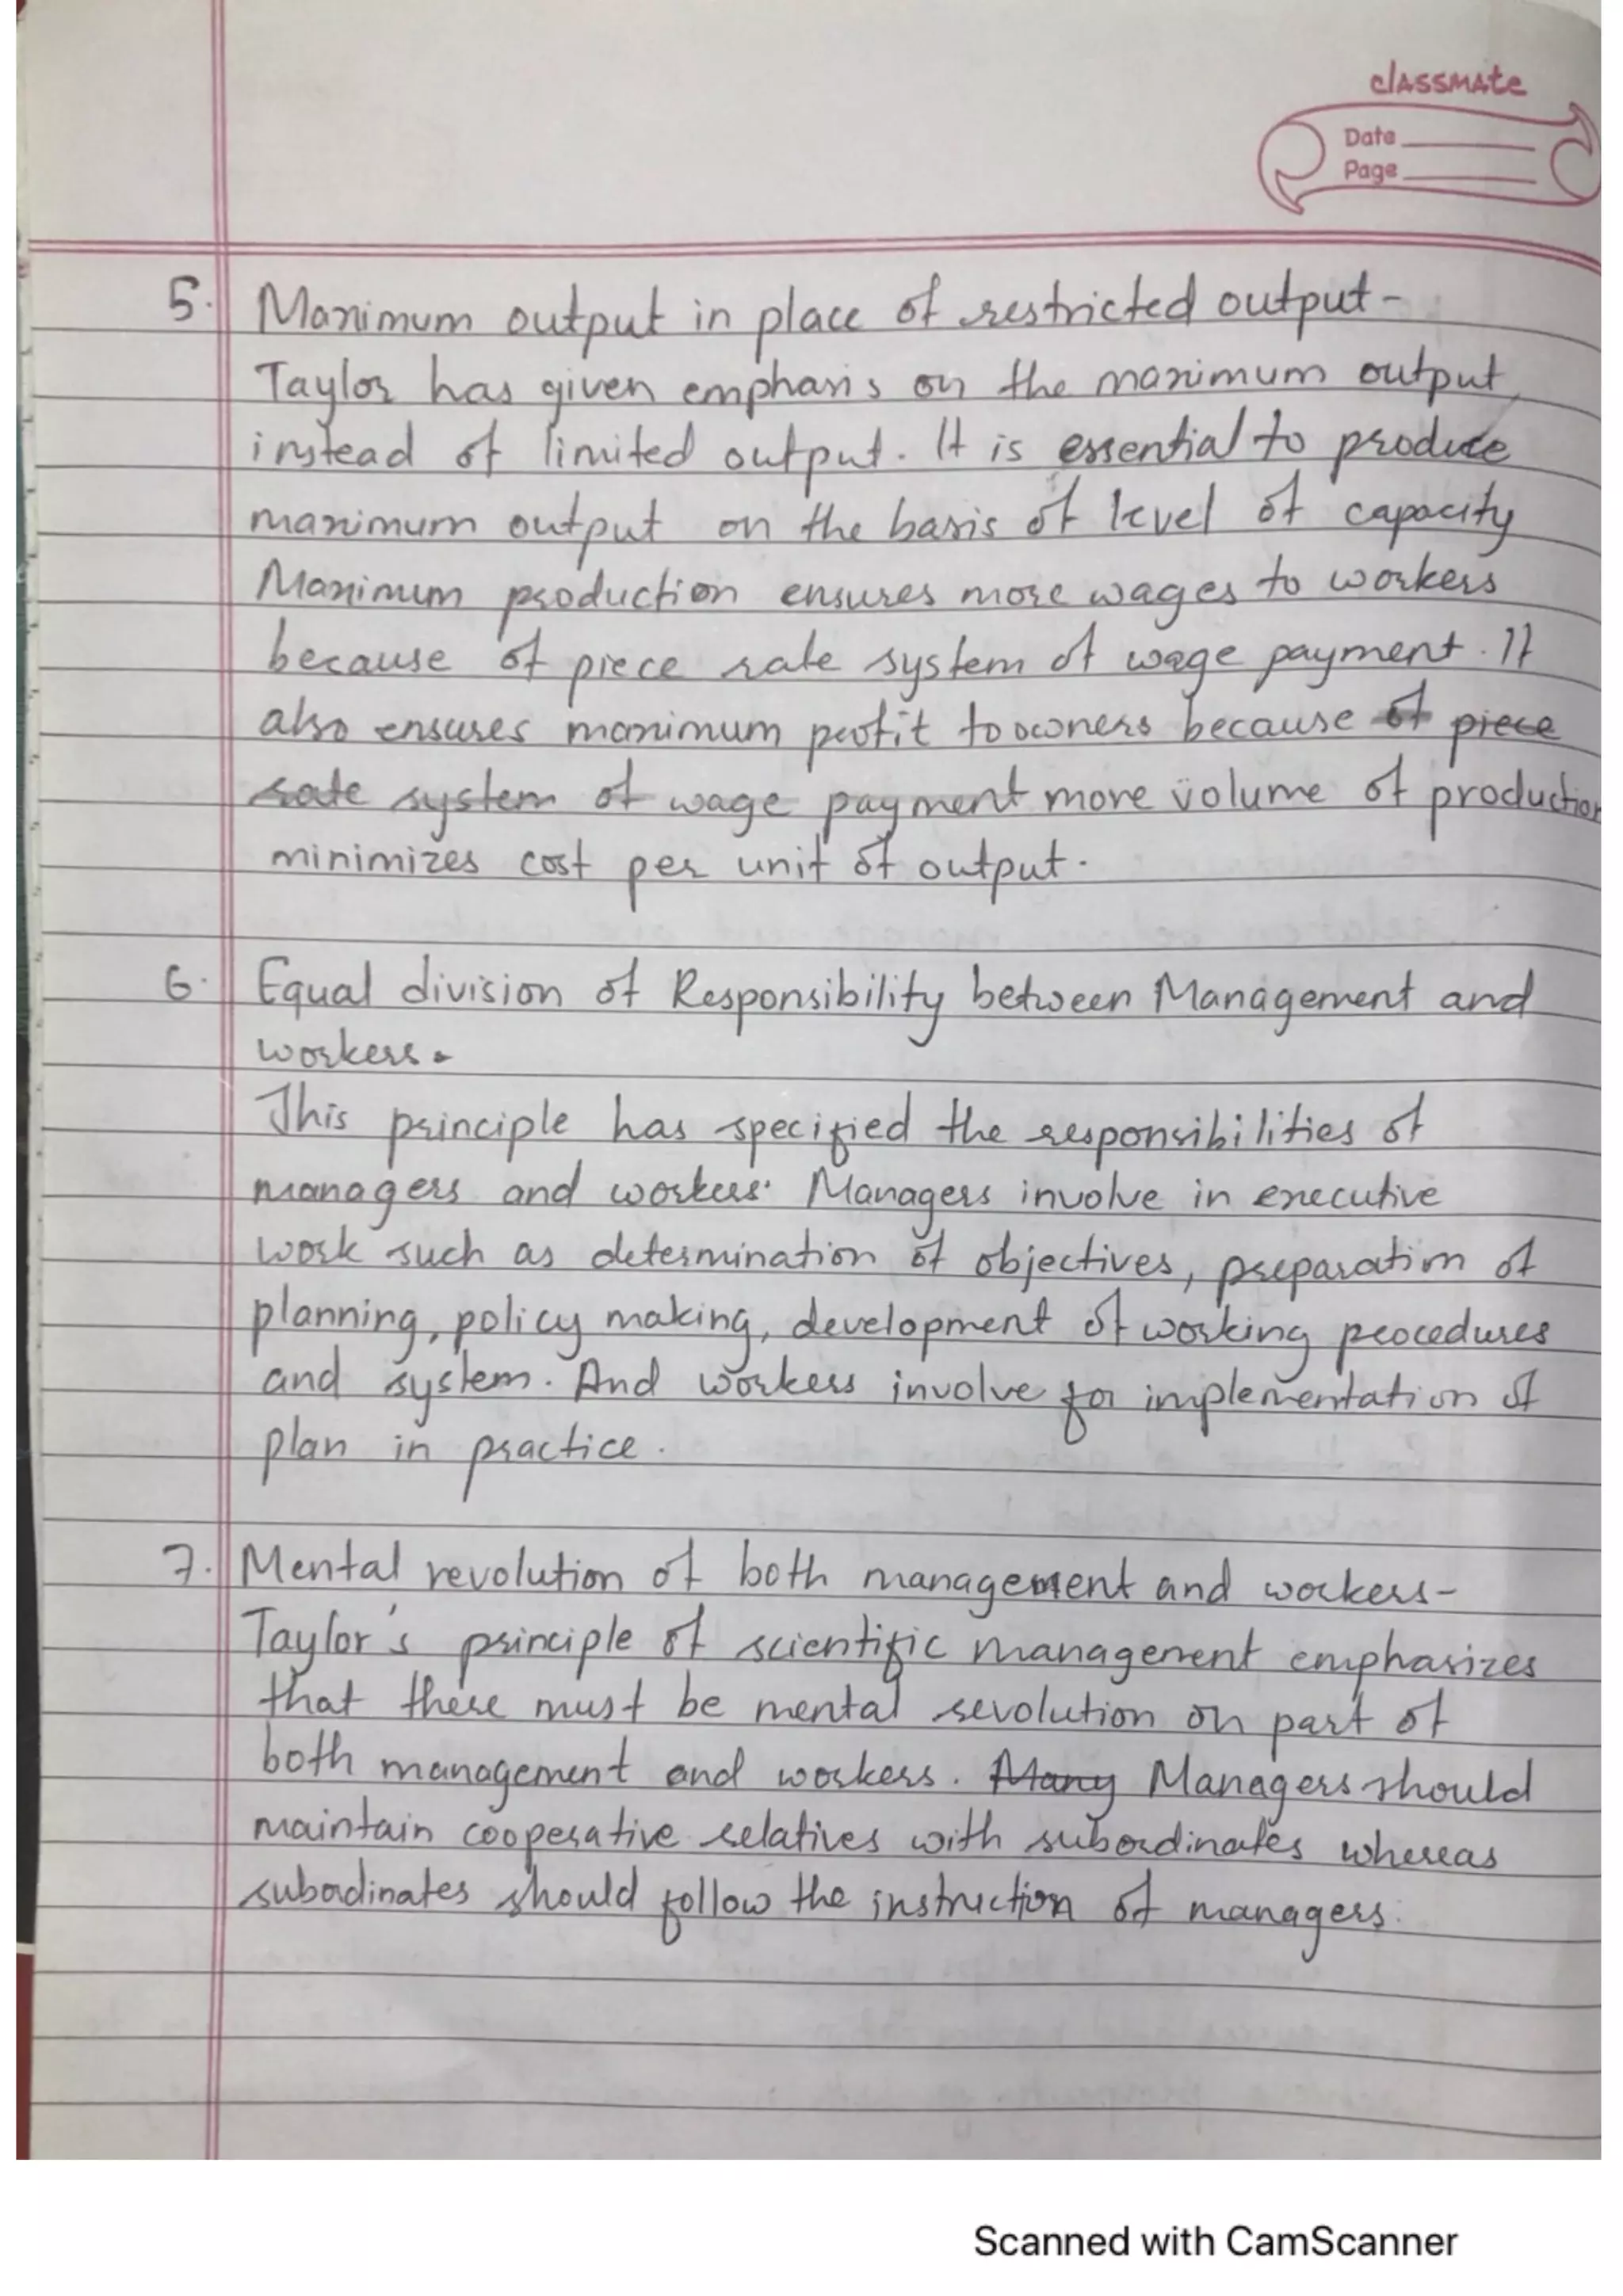 classmate
Date
Page
5. Maximum output in place of restricted output-
Taylor has given emphasis on the maximum output,
instead of limited output. It is essential to produce
maximum output on the basis of level of capacity
Maximum production ensures more wages to workers
because of piece rate system of wage payment. It
also ensures maximum profit to owners because of piece
rate system of wage payment more volume of production
minimizes cost per unit of output.
6. Equal division of Responsibility between Management and
workers.
This principle has specified the responsibilities of
managers and workers. Managers involve in executive
work such as determination of objectives, preparation of
planning, policy making, development of working procedures
and system. And workers involve for implementation of
plan in practice.
7. Mental revolution of both management and workers-
Taylor's principle of scientific management emphasizes
that there must be mental revolution on part of
both management and workers. Many Managers should
maintain cooperative relatives with subordinates whereas
subodinates should follow the instruction of managers.
Scanned with CamScanner